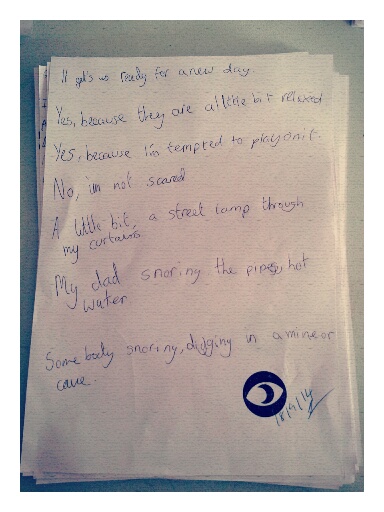 It gets us ready for a new day.
Yes, because they are a little bit relaxed
Yes, because i'm tempted to play on it.
No, im not scared
A little bit, a street lamp through
my curtains
My dad snoring the pipes, hot
water
Some body snoring, digging in a mine or
cave.
18/9/14